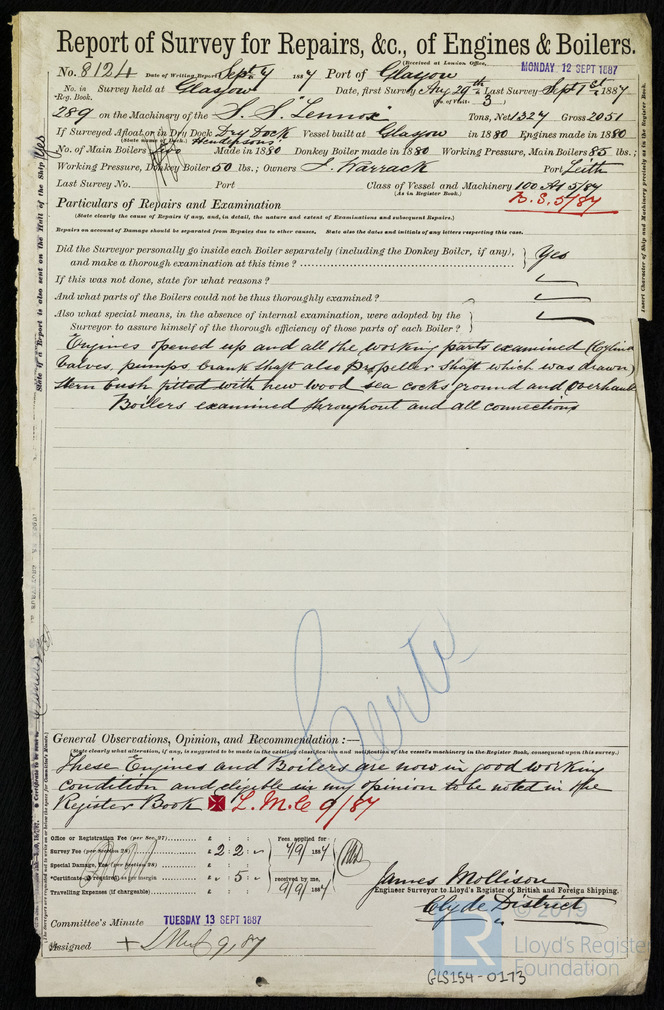 Report of Survey for Repairs, &c., of Engines & Boilers.
(Received at London Office,
MONDAY 12 SEPT 1887
No. 8124 Date of Writing Report Sept 7 1887 Port of Glasgow
No. in Reg. Book. Survey held at Glasgow Date, first Survey Aug 29th Last Survey Sept 1st 1887
(No. of Visits 3)
289 on the Machinery of the S. S. "Lennox" Tons, Net 1327 Gross 2051
If Surveyed Afloat or in Dry Dock Dry Dock Vessel built at Glasgow in 1880 Engines made in 1880
(State name of Dock.) Hendersons'
No. of Main Boilers two Made in 1880 Donkey Boiler made in 1880 Working Pressure, Main Boilers 85 lbs.;
Working Pressure, Donkey Boiler 50 lbs.; Owners J. Warrack Port Leith
Last Survey No. Port Class of Vessel and Machinery 100 A1 5/84
(As in Register Book.) B. S. 5/87
Particulars of Repairs and Examination
(State clearly the cause of Repairs if any, and, in detail, the nature and extent of Examinations and subsequent Repairs.)
Repairs on account of Damage should be separated from Repairs due to other causes. State also the dates and initials of any letters respecting this case.
Did the Surveyor personally go inside each Boiler separately (including the Donkey Boiler, if any),
and make a thorough examination at this time? Yes
If this was not done, state for what reasons?
And what parts of the Boilers could not be thus thoroughly examined?
Also what special means, in the absence of internal examination, were adopted by the
Surveyor to assure himself of the thorough efficiency of those parts of each Boiler?
Engines opened up and all the working parts examined (Cylind
Valves, pumps crank shaft also Propeller shaft which was drawn)
Stern bush fitted with new wood sea cocks ground and overhaul
Boilers examined throughout and all connections
Certe
General Observations, Opinion, and Recommendation:—
(State clearly what alteration, if any, is suggested to be made in the existing classification and notification of the vessel's machinery in the Register Book, consequent upon this survey.)
These Engines and Boilers are now in good working
condition and eligible in my opinion to be noted in the
Register Book L.M.C 9/87
Office or Registration Fee (per Sec. 27) £ : :
Survey Fee (per Section 28) £ 2 : 2 : Fees applied for 7/9/1887
Special Damage, Fee (per Section 28) £ : :
*Certificate (if required) as per margin £ : 5 : received by me,
Travelling Expenses (if chargeable) £ : : 9/9/1887
James Mollison
Engineer Surveyor to Lloyd's Register of British and Foreign Shipping.
Clyde District
Committee's Minute TUESDAY 13 SEPT 1887
Assigned + LMC 9,87
© 2019
LR
Lloyd's Register
Foundation
GLS154-0173
State if a Report is also sent on the Hull of the Ship Yes
Insert Character of Ship and Machinery precisely as in the Register Book.